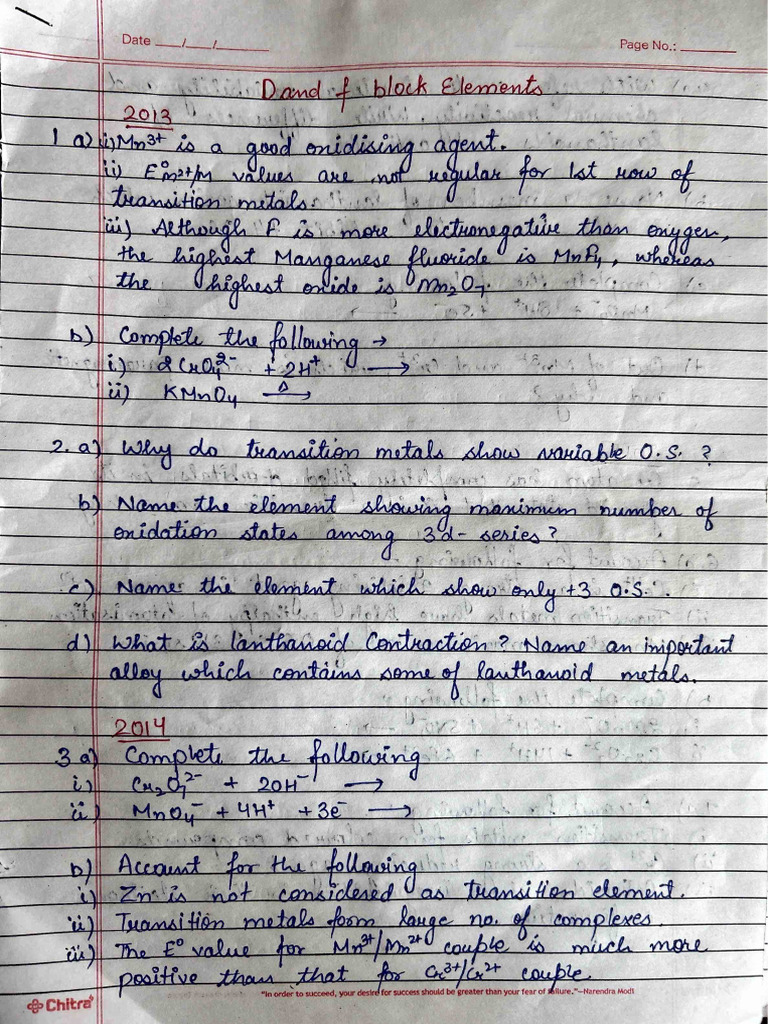 Date ___/___/______
Page No.: ______
D and f block Elements
2013
1 a) i) Mn³⁺ is a good oxidising agent.
ii) E°M²⁺/M values are not regular for 1st row of
transition metals.
iii) Although F is more electronegative than oxygen,
the highest Manganese fluoride is MnF₄, whereas
the highest oxide is Mn₂O₇.
b) Complete the following →
i) 2CrO₄²⁻ + 2H⁺ ⟶
ii) KMnO₄ —Δ→
2. a) Why do transition metals show variable O.S. ?
b) Name the element showing maximum number of
oxidation states among 3d- series ?
c) Name the element which show only +3 O.S.
d) What is lanthanoid Contraction ? Name an important
alloy which contains some of lanthanoid metals.
2014
3 a) Complete the following
i) Cr₂O₇²⁻ + 2OH⁻ ⟶
ii) MnO₄⁻ + 4H⁺ + 3e⁻ ⟶
b) Account for the following
i) Zn is not considered as transition element.
ii) Transition metals form large no. of complexes.
iii) The E° value for Mn³⁺/Mn²⁺ couple is much more
positive than that for Cr³⁺/Cr²⁺ couple.
Chitra
"In order to succeed, your desire for success should be greater than your fear of failure."–Narendra Modi